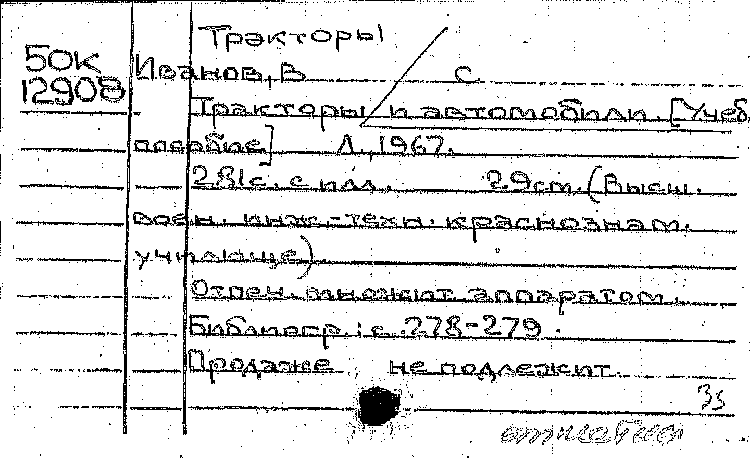 Тракторы
50К
12908
Иванов, В С
Тракторы и автомобили. [Учеб.
пособие] Л., 1967.
281с. с илл. 29см. (Высш.
воен. инж.-техн. краснознам.
училище).
Отпеч. множит. аппаратом.
Библиогр.: с. 278-279.
Продаже не подлежит.